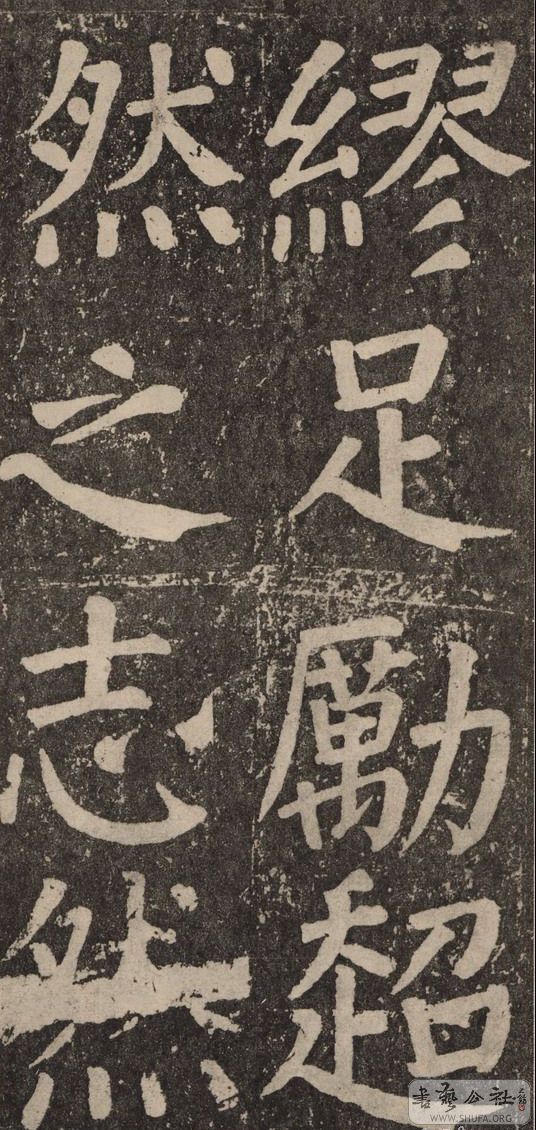 繆足勵超
然之志然
書藝公社
WWW.SHUFA.ORG